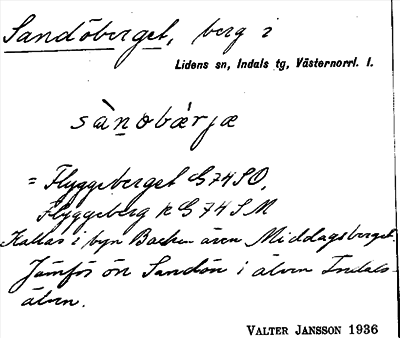 Sandöberget, berg i
Lidens sn, Indals tg, Västernorrl. l.
sànobǽrjæ
= Flyggeberget G 74 S O,
Flyggeberg k G 74 S M
Kallas i byn Backen även Middagsberget.
Jämför ön Sandön i älven Indals-
älven.
VALTER JANSSON 1936